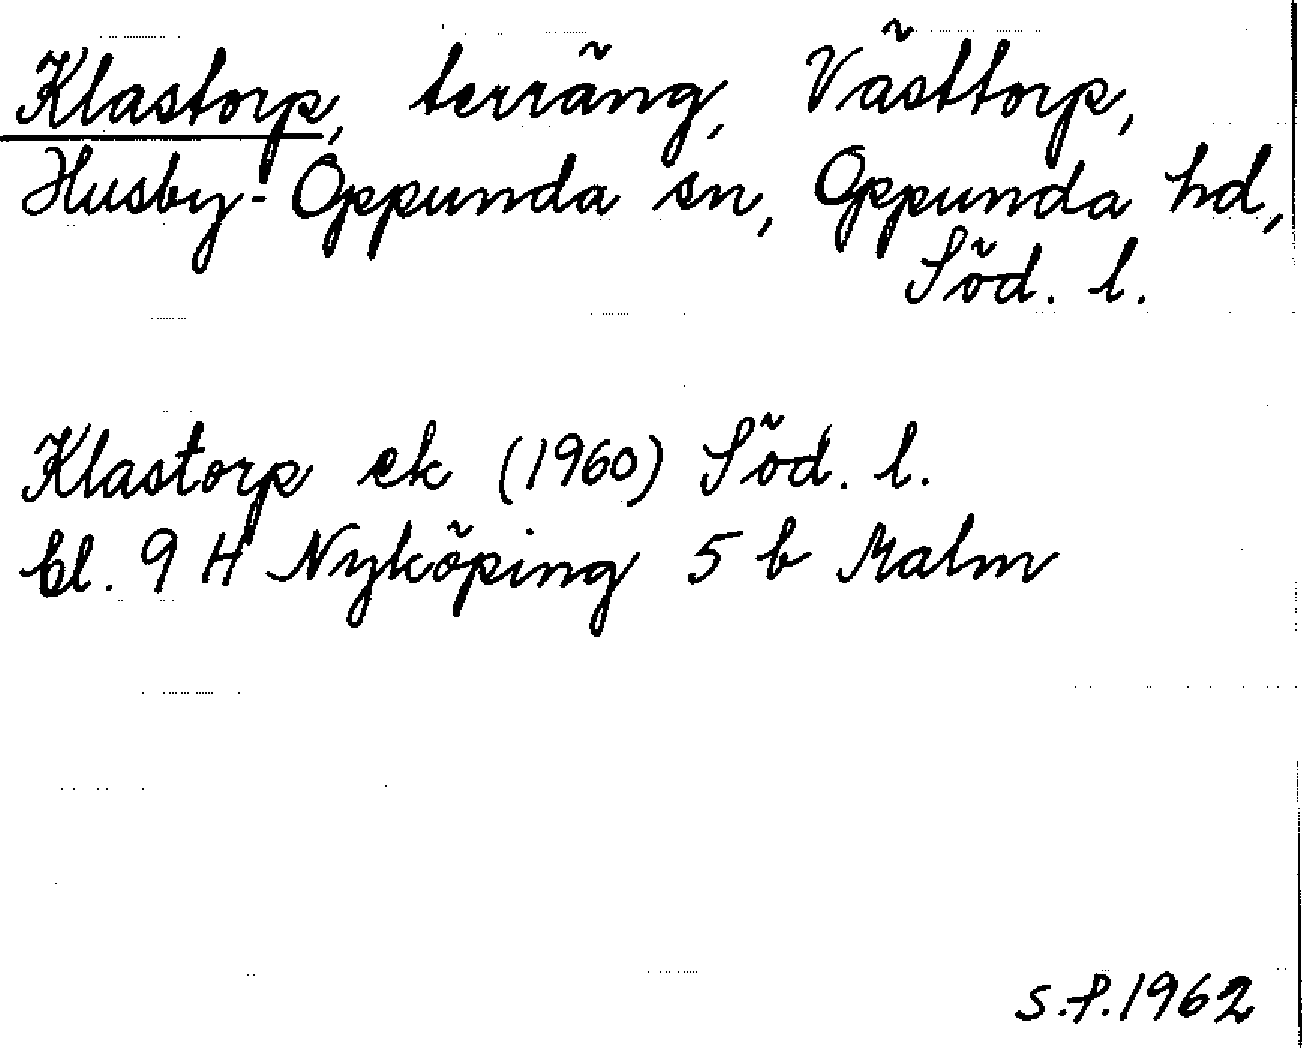 Klastorp, terräng, Västtorp,
Husby-Oppunda sn, Oppunda hd,
Söd. l.
Klastorp ek (1960) Söd. l.
bl. 9 H Nyköping 5 b Malm
S.P. 1962